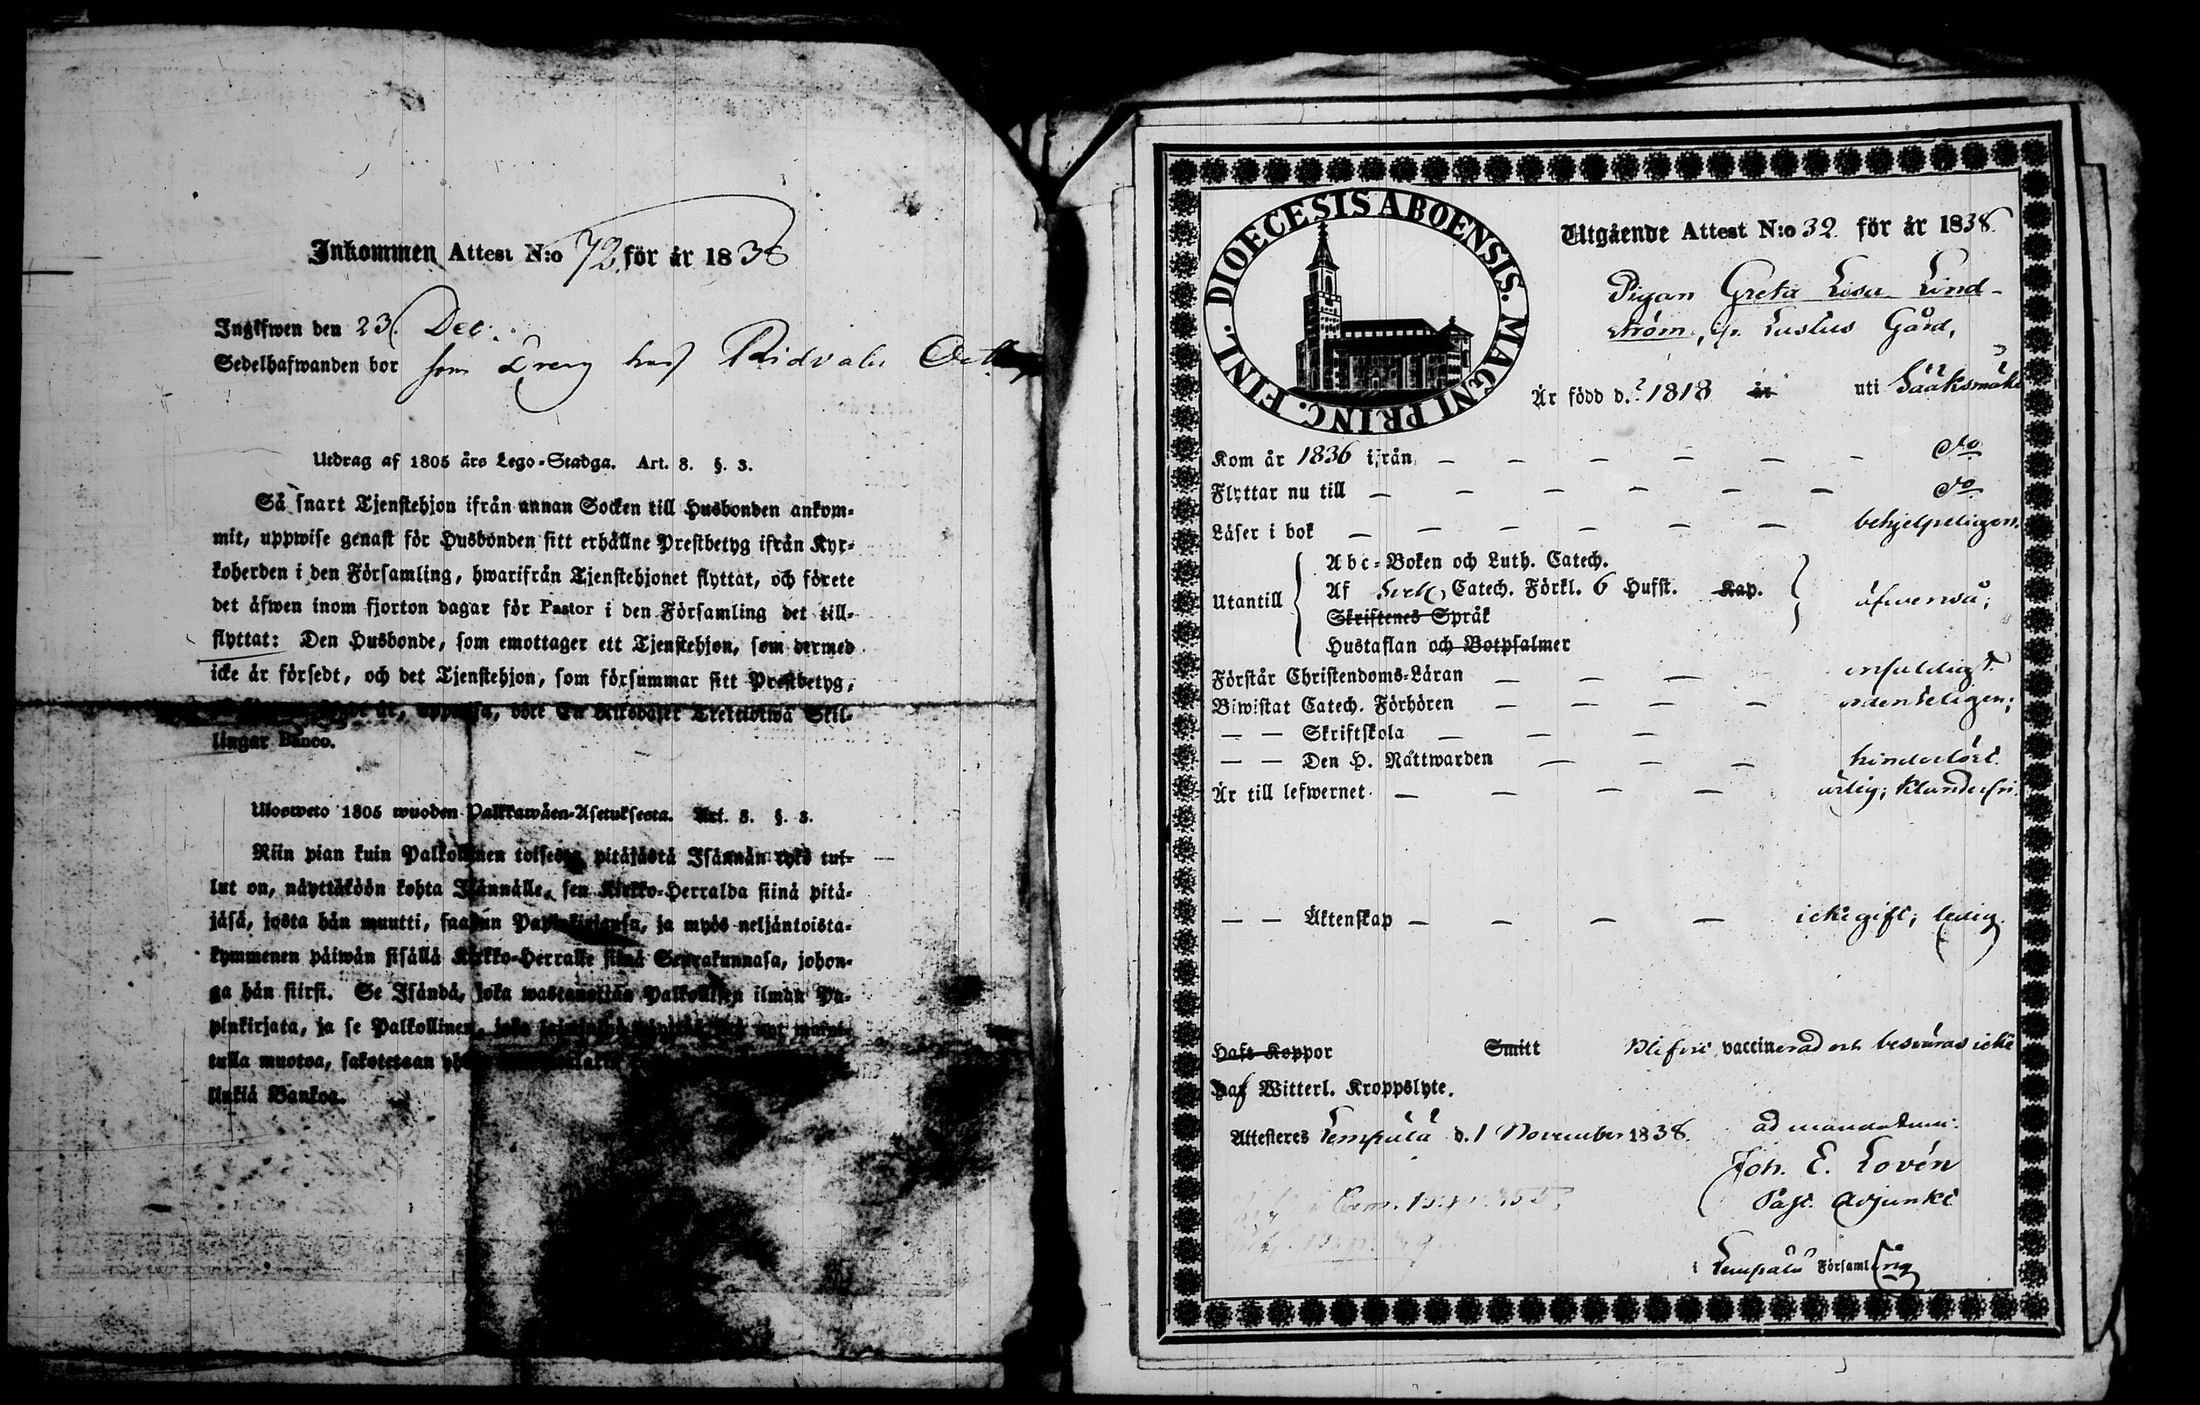 Inkommen Attest N:o 72 för år 1838
Ingifwen den 23 Dec:
Sedelhafwanden bor som Dreng hos Ridvala
Utdrag af 1805 års Lego-Stadga. Art. 8. §. 3.
Så snart Tjenstehjon ifrån annan Socken till Husbonden ankom-
mit, uppwise genast för Husbonden sitt erhållne Prestbetyg ifrån Kyr-
koherden i den Församling, hwarifrån Tjenstehjonet flyttat, och förete
det äfwen inom fjorton dagar för Pastor i den Församling det till-
flyttat: Den Husbonde, som emottager ett Tjenstehjon, som dermed
icke är försedt, och det Tjenstehjon, som försummar sitt Prestbetyg,
böte En Riksdaler Trettiotwå Skil-
lingar Banco.
Ulosweto 1805 wuoden Palkkawäen-Asetuksesta. Art. 8. §. 3.
Niin pian kuin Palkollinen toisesta pitäjästä Isännän tykö tul-
lut on, näyttäköön kohta Isännälle, sen Kirkko-Herralda siinä pitä-
jäsä, josta hän muutti, saadun Papinkirjansa, ja myös neljäntoista-
kymmenen päiwän sisällä Kirkko-Herralle siinä Seurakunnasa, johon-
ga hän siirsi. Se Isändä, joka wastanottaa Palkollisen ilman Pa-
pinkirjata, ja se Palkollinen, joka
tulla muotoa, sakotetaan
linkiä Bankoa.
DIOECESIS ABOENSIS. MAGNI PRINC. FINL.
Utgående Attest N:o 32 för år 1838.
Pigan Greta Lisa Lind-
ström, fr. Gård,
Är född d. ? 1818 år uti Sääksmäki
Kom år 1836 ifrån — — — — — — do
Flyttar nu till — — — — — — do
Läser i bok — — — — — — behjelpeligen.
Abc-Boken och Luth. Catech.
Utantill Af Catech. Förkl. 6 Hufst. Kap. äfwenså;
Skriftenes Språk
Hustaflan och Botpsalmer
Förstår Christendoms-Läran — — — enfaldigt
Biwistat Catech. Förhören — — — — ordenteligen;
— — Skriftskola — — —
— — Den H. Nattwarden — — — hinderlöst.
Är till lefwernet — — — — ärlig; klanderfri.
— — Äktenskap — — — — icke gift; ledig.
Haft Koppor Smitt Blifvit vaccinerad och besväras icke
Haf Witterl. Kroppslyte.
Attesteres Lempälä d. 1 November 1838. ad mandatum:
Joh. E. Lovén
Past. Adjunkt
i Lempälä Församling